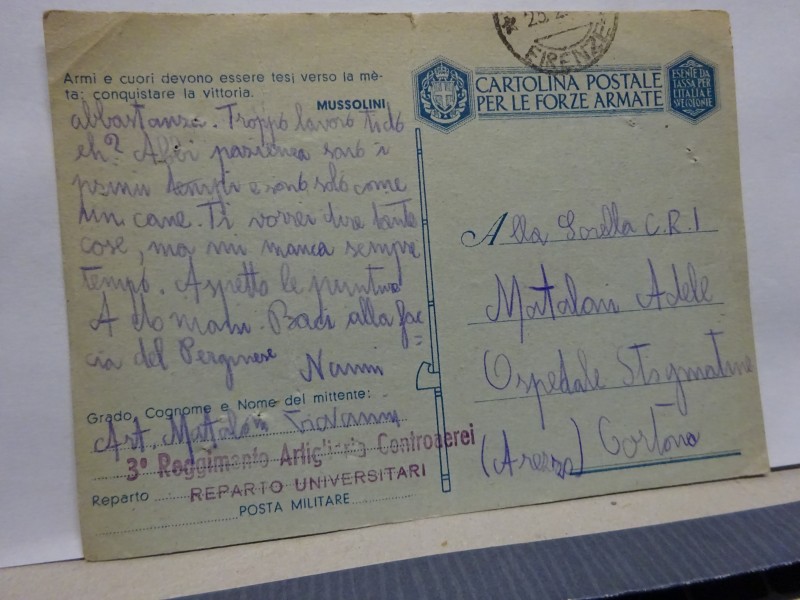 Armi e cuori devono essere tesi verso la mè-
ta: conquistare la vittoria.
MUSSOLINI
abbastanza. Troppo lavoro ti do
eh? Abbi pazienza sono i
primi tempi e sono solo come
un cane. Ti vorrei dire tante
cose, ma mi manca sempre
tempo. Aspetto le
A domani. Baci alla fac=
cia del Perginese
Nanni
Grado, Cognome e Nome del mittente:
Art. Matalon Giovanni
3° Reggimento Artiglieria Controaerei
Reparto
REPARTO UNIVERSITARI
POSTA MILITARE
FIRENZE
CARTOLINA POSTALE
PER LE FORZE ARMATE
ESENTE DA
TASSA PER
L'ITALIA E
SUE COLONIE
Alla Sorella C.R.I
Matalon Adele
Ospedale Stigmatine
(Arezzo) Cortona